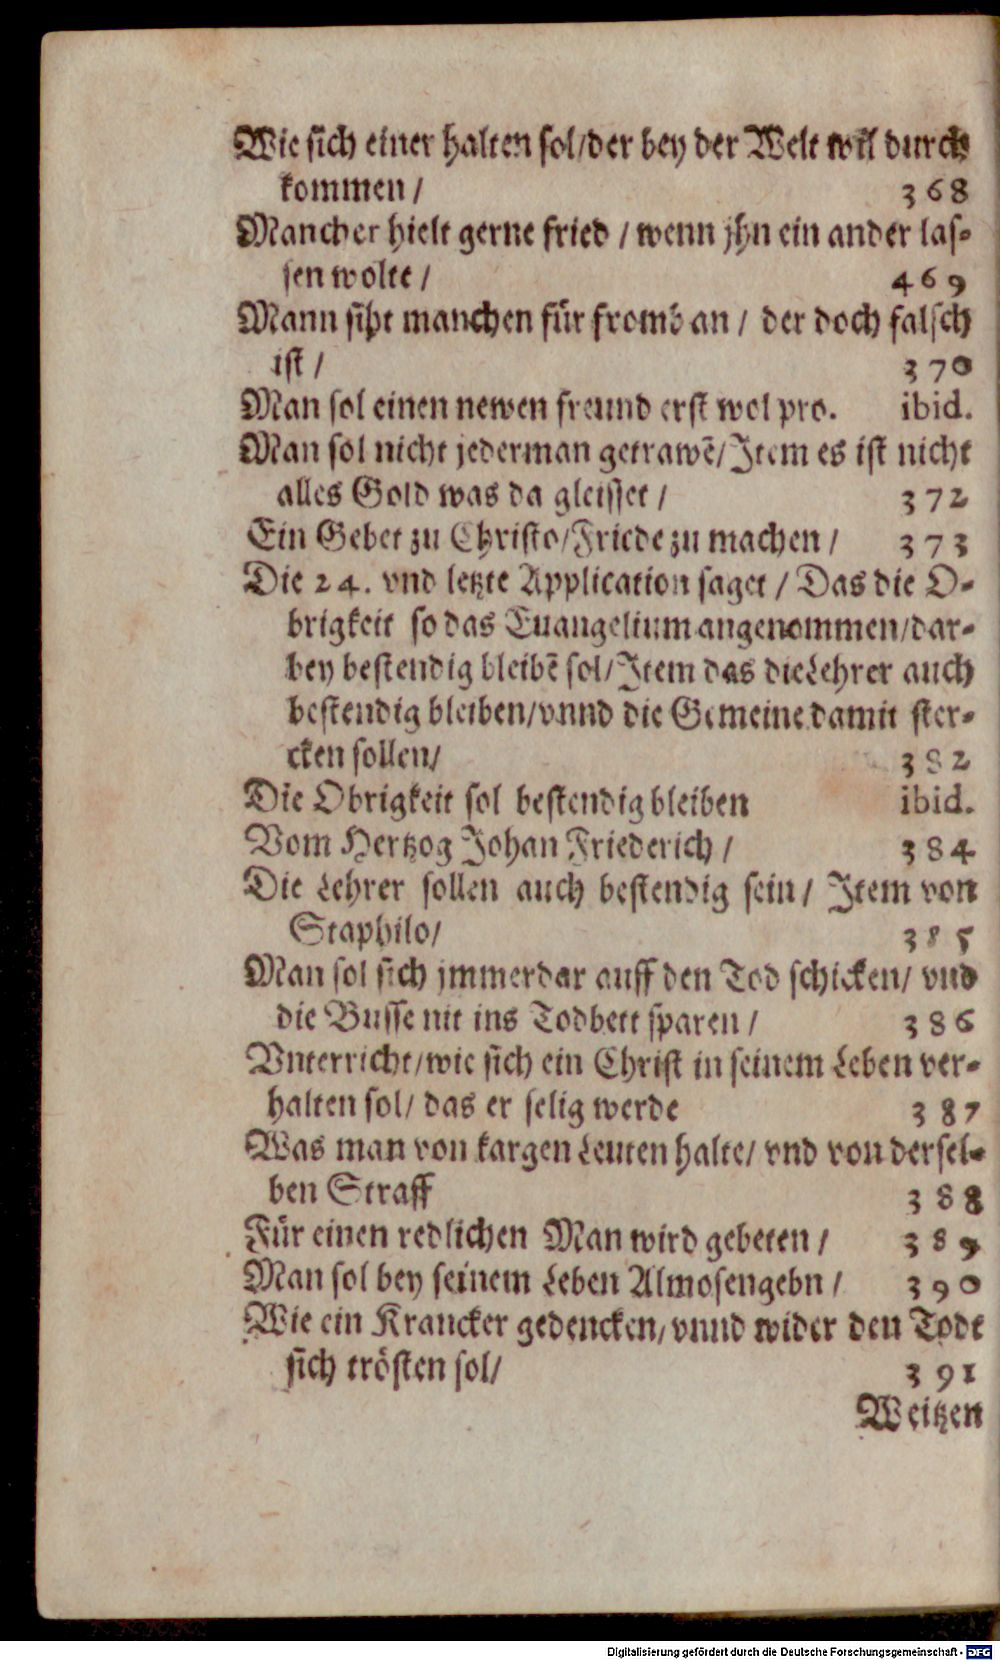 Wie sich einer halten sol/der bey der Welt wil durch
kommen / 368
Mancher hielt gerne fried / wenn jhn ein ander las-
sen wolte / 469
Mann siht manchen für fromb an / der doch falsch
ist / 370
Man sol einen newen freund erst wol pro. ibid.
Man sol nicht jederman getrawẽ/Item es ist nicht
alles Gold was da gleisset / 372
Ein Gebet zu Christo/Friede zu machen / 373
Die 24. vnd letzte Application saget / Das die O-
brigkeit so das Euangelium angenommen/dar-
bey bestendig bleibẽ sol/Item das die Lehrer auch
bestendig bleiben/vnnd die Gemeine damit ster-
cken sollen/ 382
Die Obrigkeit sol bestendig bleiben ibid.
Vom Hertzog Johan Friederich / 384
Die Lehrer sollen auch bestendig sein / Item von
Staphilo/ 385
Man sol sich jmmerdar auff den Tod schicken/ vnd
die Busse nit ins Todbett sparen / 386
Vnterricht/wie sich ein Christ in seinem Leben ver-
halten sol/ das er selig werde 387
Was man von kargen Leuten halte/ vnd von dersel-
ben Straff 388
Für einen redlichen Man wird gebeten / 389
Man sol bey seinem Leben Almosengebn / 390
Wie ein Krancker gedencken/vnnd wider den Todt
sich trösten sol/ 391
Weitzen
Digitalisierung gefördert durch die Deutsche Forschungsgemeinschaft - DFG